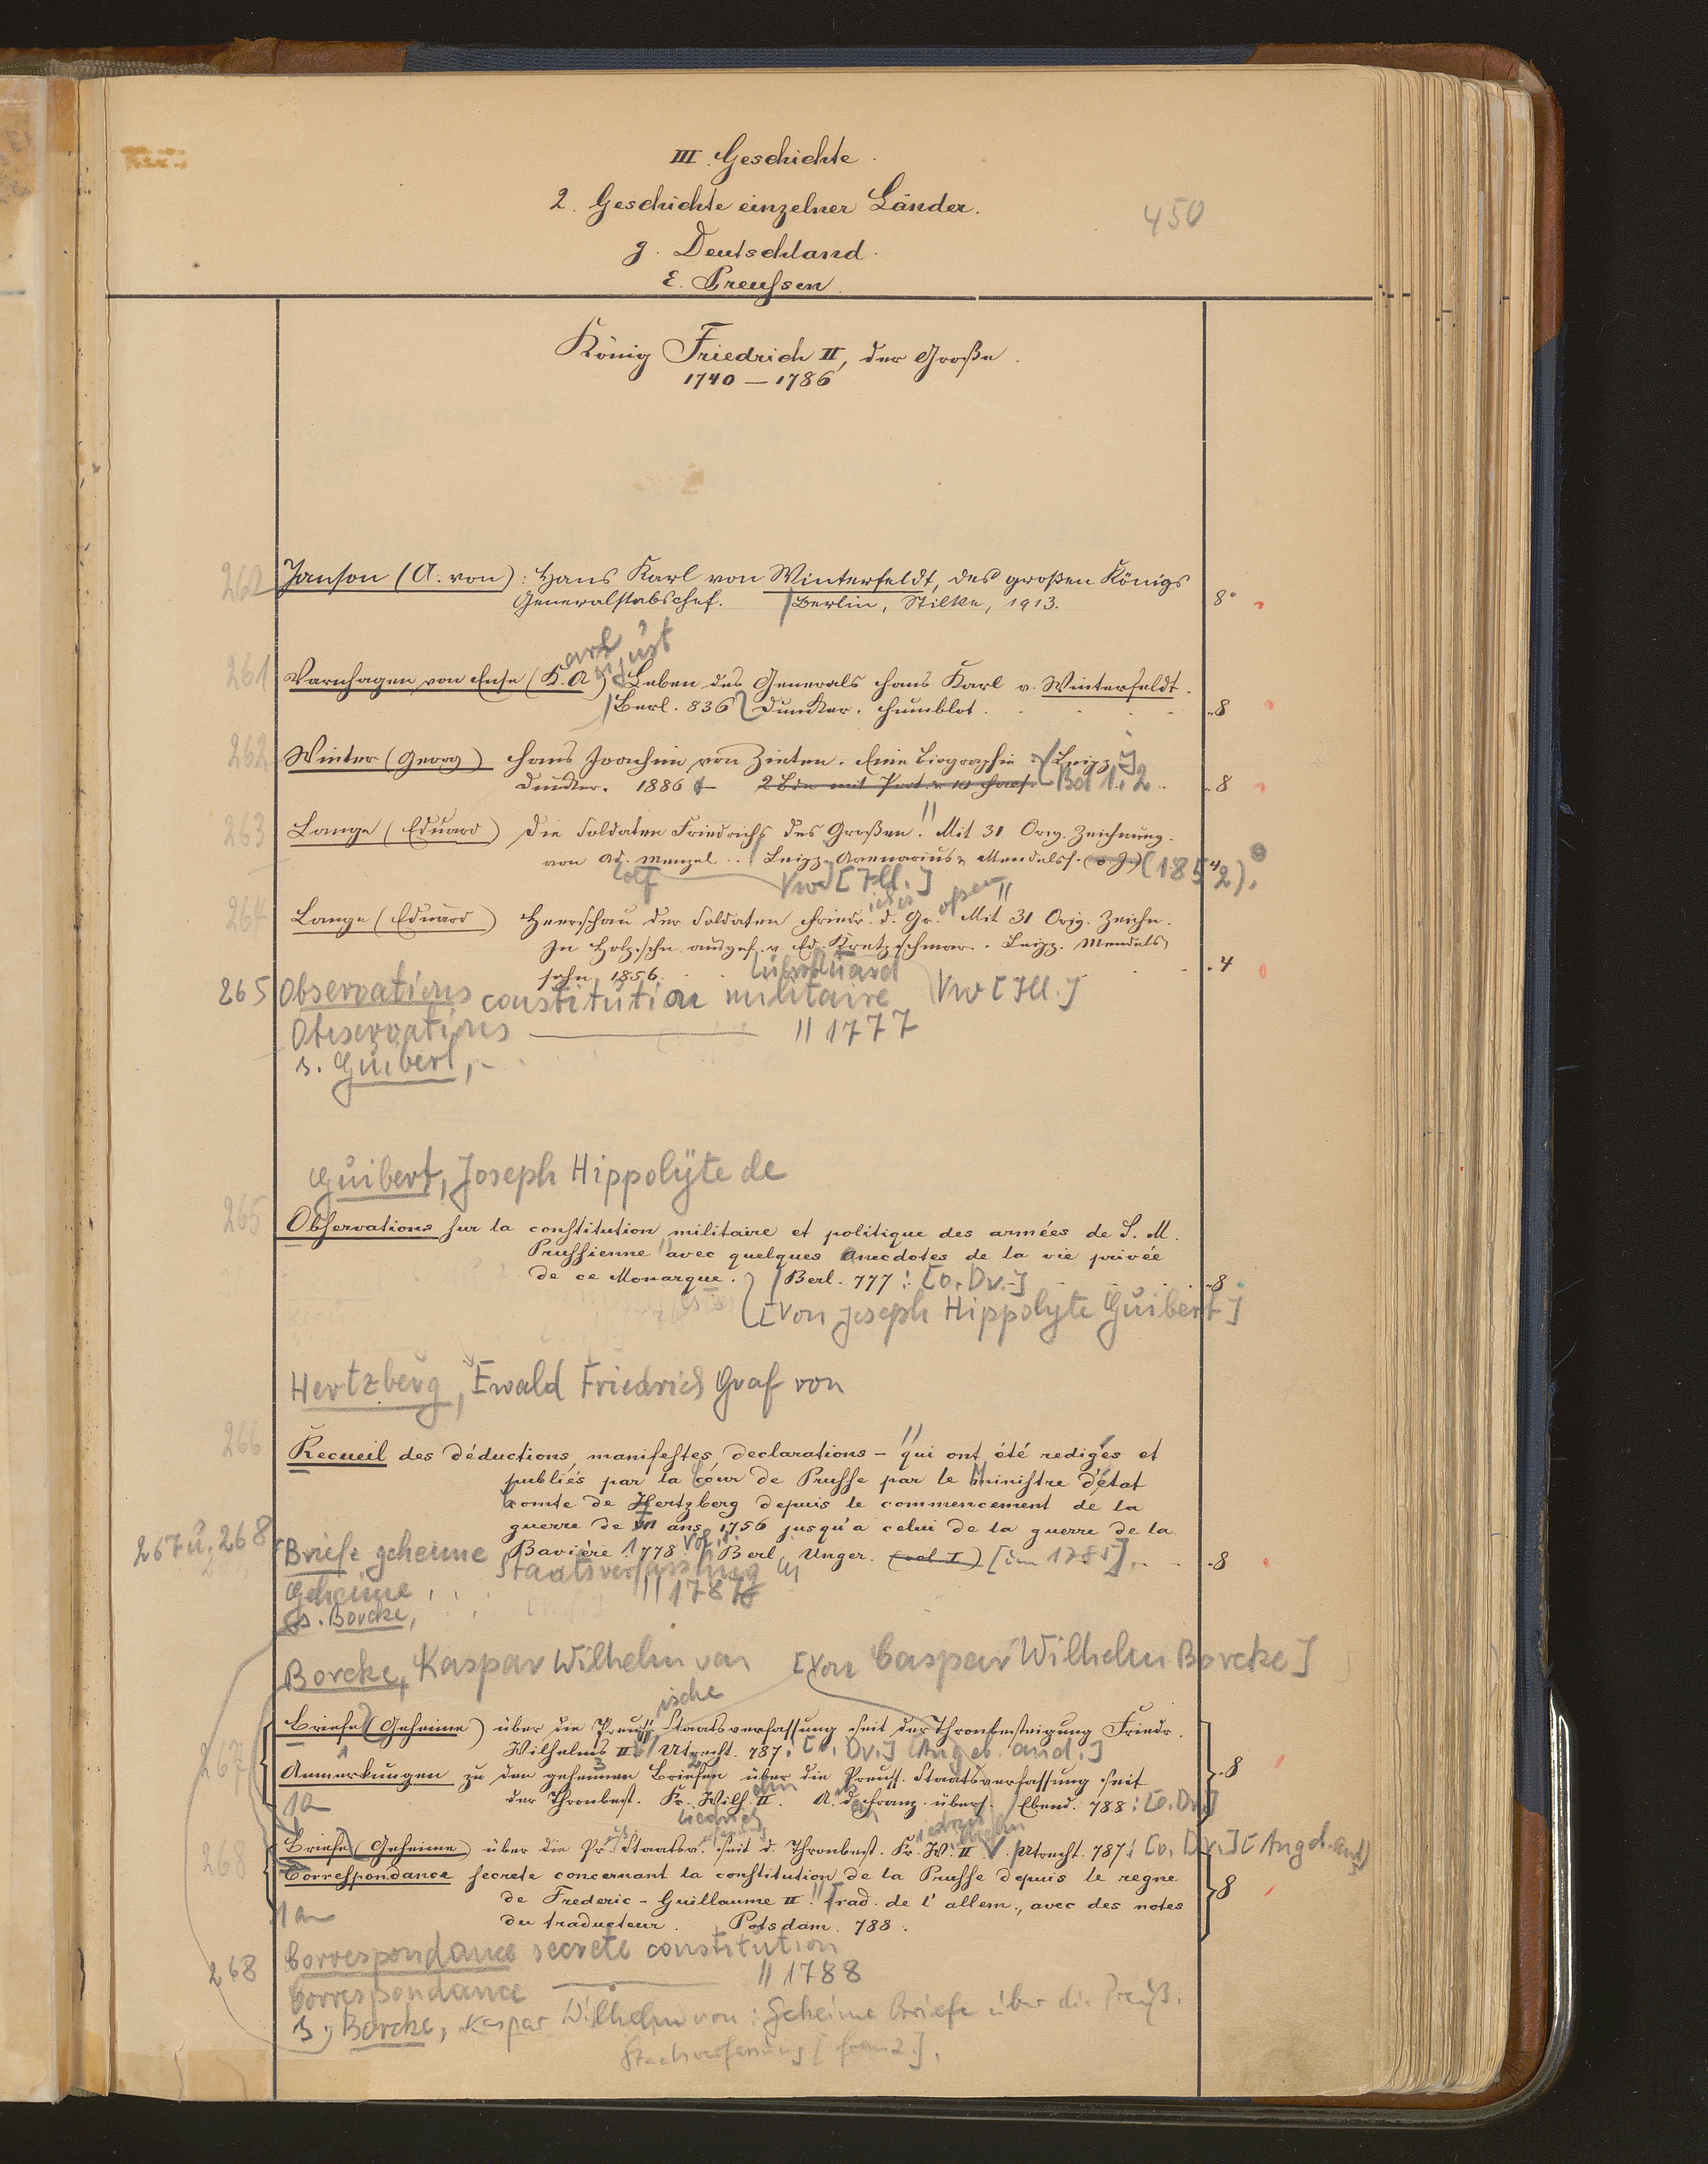 III. Geschichte.
2. Geschichte einzelner Länder.
450
g. Deutschland.
ε. Preußen.
König Friedrich II, der Große.
1740 — 1786
262 Janson (A. von): Hans Karl von Winterfeldt, des großen Königs
Generalstabschef. Berlin, Stilke, 1913. 8°
arl ugust
261 Varnhagen von Ense (K. A) Leben des Generals Hans Karl v. Winterfeldt.
Berl. 836 Duncker. Humblot. 8
262 Winter (Georg) Hans Joachim von Zieten. Eine Biographie. Leipz.
Duncker. 1886 2 Bde mit Port. Bd 1. 2 8
263 Lange (Eduard) Die Soldaten Friedrichs des Großen. Mit 31 Orig. Zeichnung.
von Ad. Menzel. Leipz. Avenarius & Mendelss. (o. J.) (1852). 4
olf Vw [Ill.]
264 Lange (Eduard) Heerschau der Soldaten Friedr. d. Gr. Mit 31 Orig. Zeichn.
In Holzschn. ausgef. v. Ed. Kretzschmar. Leipz. Mendels
sohn 1856. 4
265 Observations constitution militaire Vw [Ill.]
Observations — // 1777
s. Guibert,
Guibert, Joseph Hippolyte de
265 Observations sur la constitution militaire et politique des armées de S. M.
Prussienne avec quelques anecdotes de la vie privée
de ce Monarque. Berl. 777: [o. Dr.] 8
[Von Joseph Hippolyte Guibert]
Hertzberg, Ewald Friedrich Graf von
266 Recueil des déductions, manifestes, declarations – qui ont été redigés et
publiés par la Cour de Prusse par le Ministre d'état
Comte de Hertzberg depuis le commencement de la
guerre de ans 1756 jusqu'a celui de la guerre de la
Bavière 1778 Vol. 1. Berl, Unger. (vol I) [um 1785]. 8
267 u. 268 Briefe geheime Staatsverfassung
Geheime // 1787
s. Borcke,
Borcke, Kaspar Wilhelm von [Von Caspar Wilhelm Borcke]
ische
267 Briefe (Geheime) über die Preuß. Staatsverfassung seit der Thronbesteigung Friedr.
Wilhelms II. Utrecht. 787: [o. Dr.] [Angeb. and.]
Anmerkungen zu den geheimen Briefen über die Preuss. Staatsverfassung seit 8
der Thronbest. Fr. Wilh. II. A. d. Franz. übers. Ebend. 788: [o. Dr.]
1a
268 Briefe (Geheime) über die Pr. Staatsv. seit d. Thronbest. Fr. W. II. Utrecht. 787: [o. Dr.] [Angeb. and]
Correspondance secrete concernant la constitution de la Prusse depuis le regne
de Frederic-Guillaume II. Trad. de l'allem., avec des notes 8
du traducteur. Potsdam. 788.
1a
268 Correspondance secrete constitution
Correspondance — // 1788
s. Borcke, Kaspar Wilhelm von: Geheime Briefe über die Preuß.
Staatsverfassung [franz.].